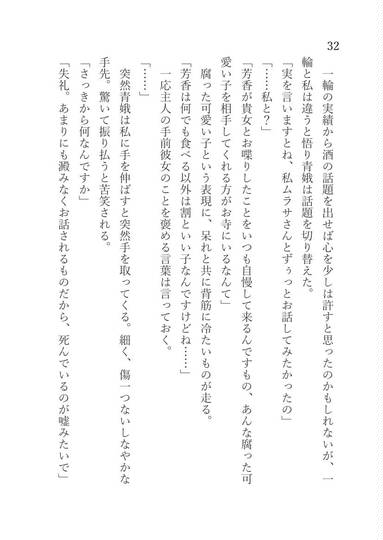 32
一輪の実績から酒の話題を出せば心を少しは許すと思ったのかもしれないが、一
輪と私は違うと悟り青娥は話題を切り替えた。
「実を言いますとね、私ムラサさんとずぅっとお話してみたかったの」
「……私と？」
「芳香が貴女とお喋りしたことをいつも自慢して来るんですもの、あんな腐った可
愛い子を相手してくれる方がお寺にいるなんて」
腐った可愛い子という表現に、呆れと共に背筋に冷たいものが走る。
「芳香は何でも食べる以外は割といい子なんですけどね……」
一応主人の手前彼女のことを褒める言葉は言っておく。
「……」
突然青娥は私に手を伸ばすと突然手を取ってくる。細く、傷一つないしなやかな
手先。驚いて振り払うと苦笑される。
「さっきから何なんですか」
「失礼。あまりにも澱みなくお話されるものだから、死んでいるのが嘘みたいで」